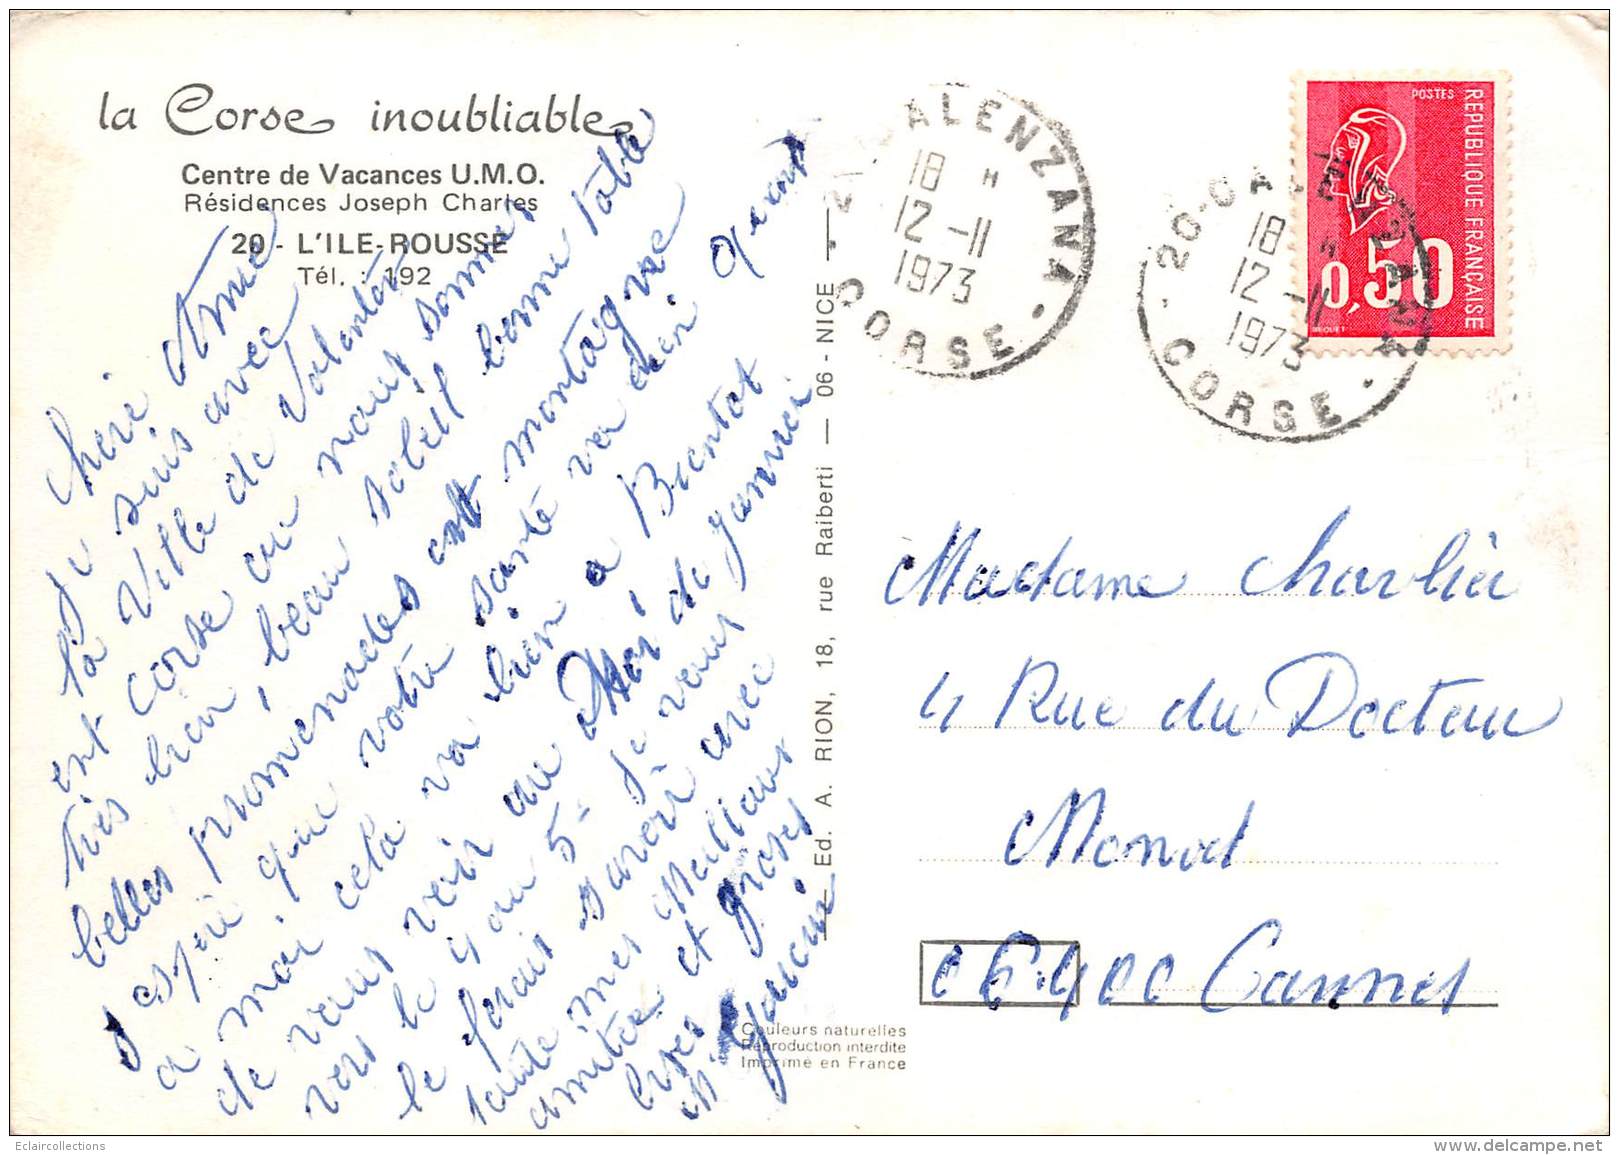 la Corse inoubliable
Centre de Vacances U.M.O.
Résidences Joseph Charles
20 - L'ILE-ROUSSE
Tél. : 192
Cheri Amie
Je suis avec
la Ville de Valenton
ent Corse ou nous sommes
très bien, beau soleil bonne table
belles promenades ent montagne
J'espère que votre santé va bien Quant
a moi cela va bien a Bientot
de vous voir au Moi de Janvier
vers le 4 ou 5- Je vous
le ferais savoir avec
toute mes Meilleurs
amitée et groses
bises
M. Gaucin
Ed. A. RION, 18, rue Raiberti — 06 - NICE
Couleurs naturelles
Reproduction interdite
Imprimé en France
20 ALENZANA
18 H
12 -11
1973
CORSE
20-CALENZANA
18 H
12 -11
1973
CORSE
POSTES
REPUBLIQUE FRANÇAISE
0,50
BEQUET
Madame Charlier
4 Rue du Docteur
Monod
06400 Cannes
Eclaircollections
www.delcampe.net